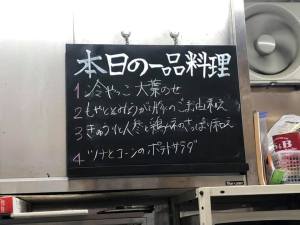 本日の一品料理
1 冷やっこ 大葉のせ
2 もやしと きゅうりの ごま和え
3 きゅうりと人参と鶏ハムのさっぱり和え
4 ツナとコーンのポテトサラダ